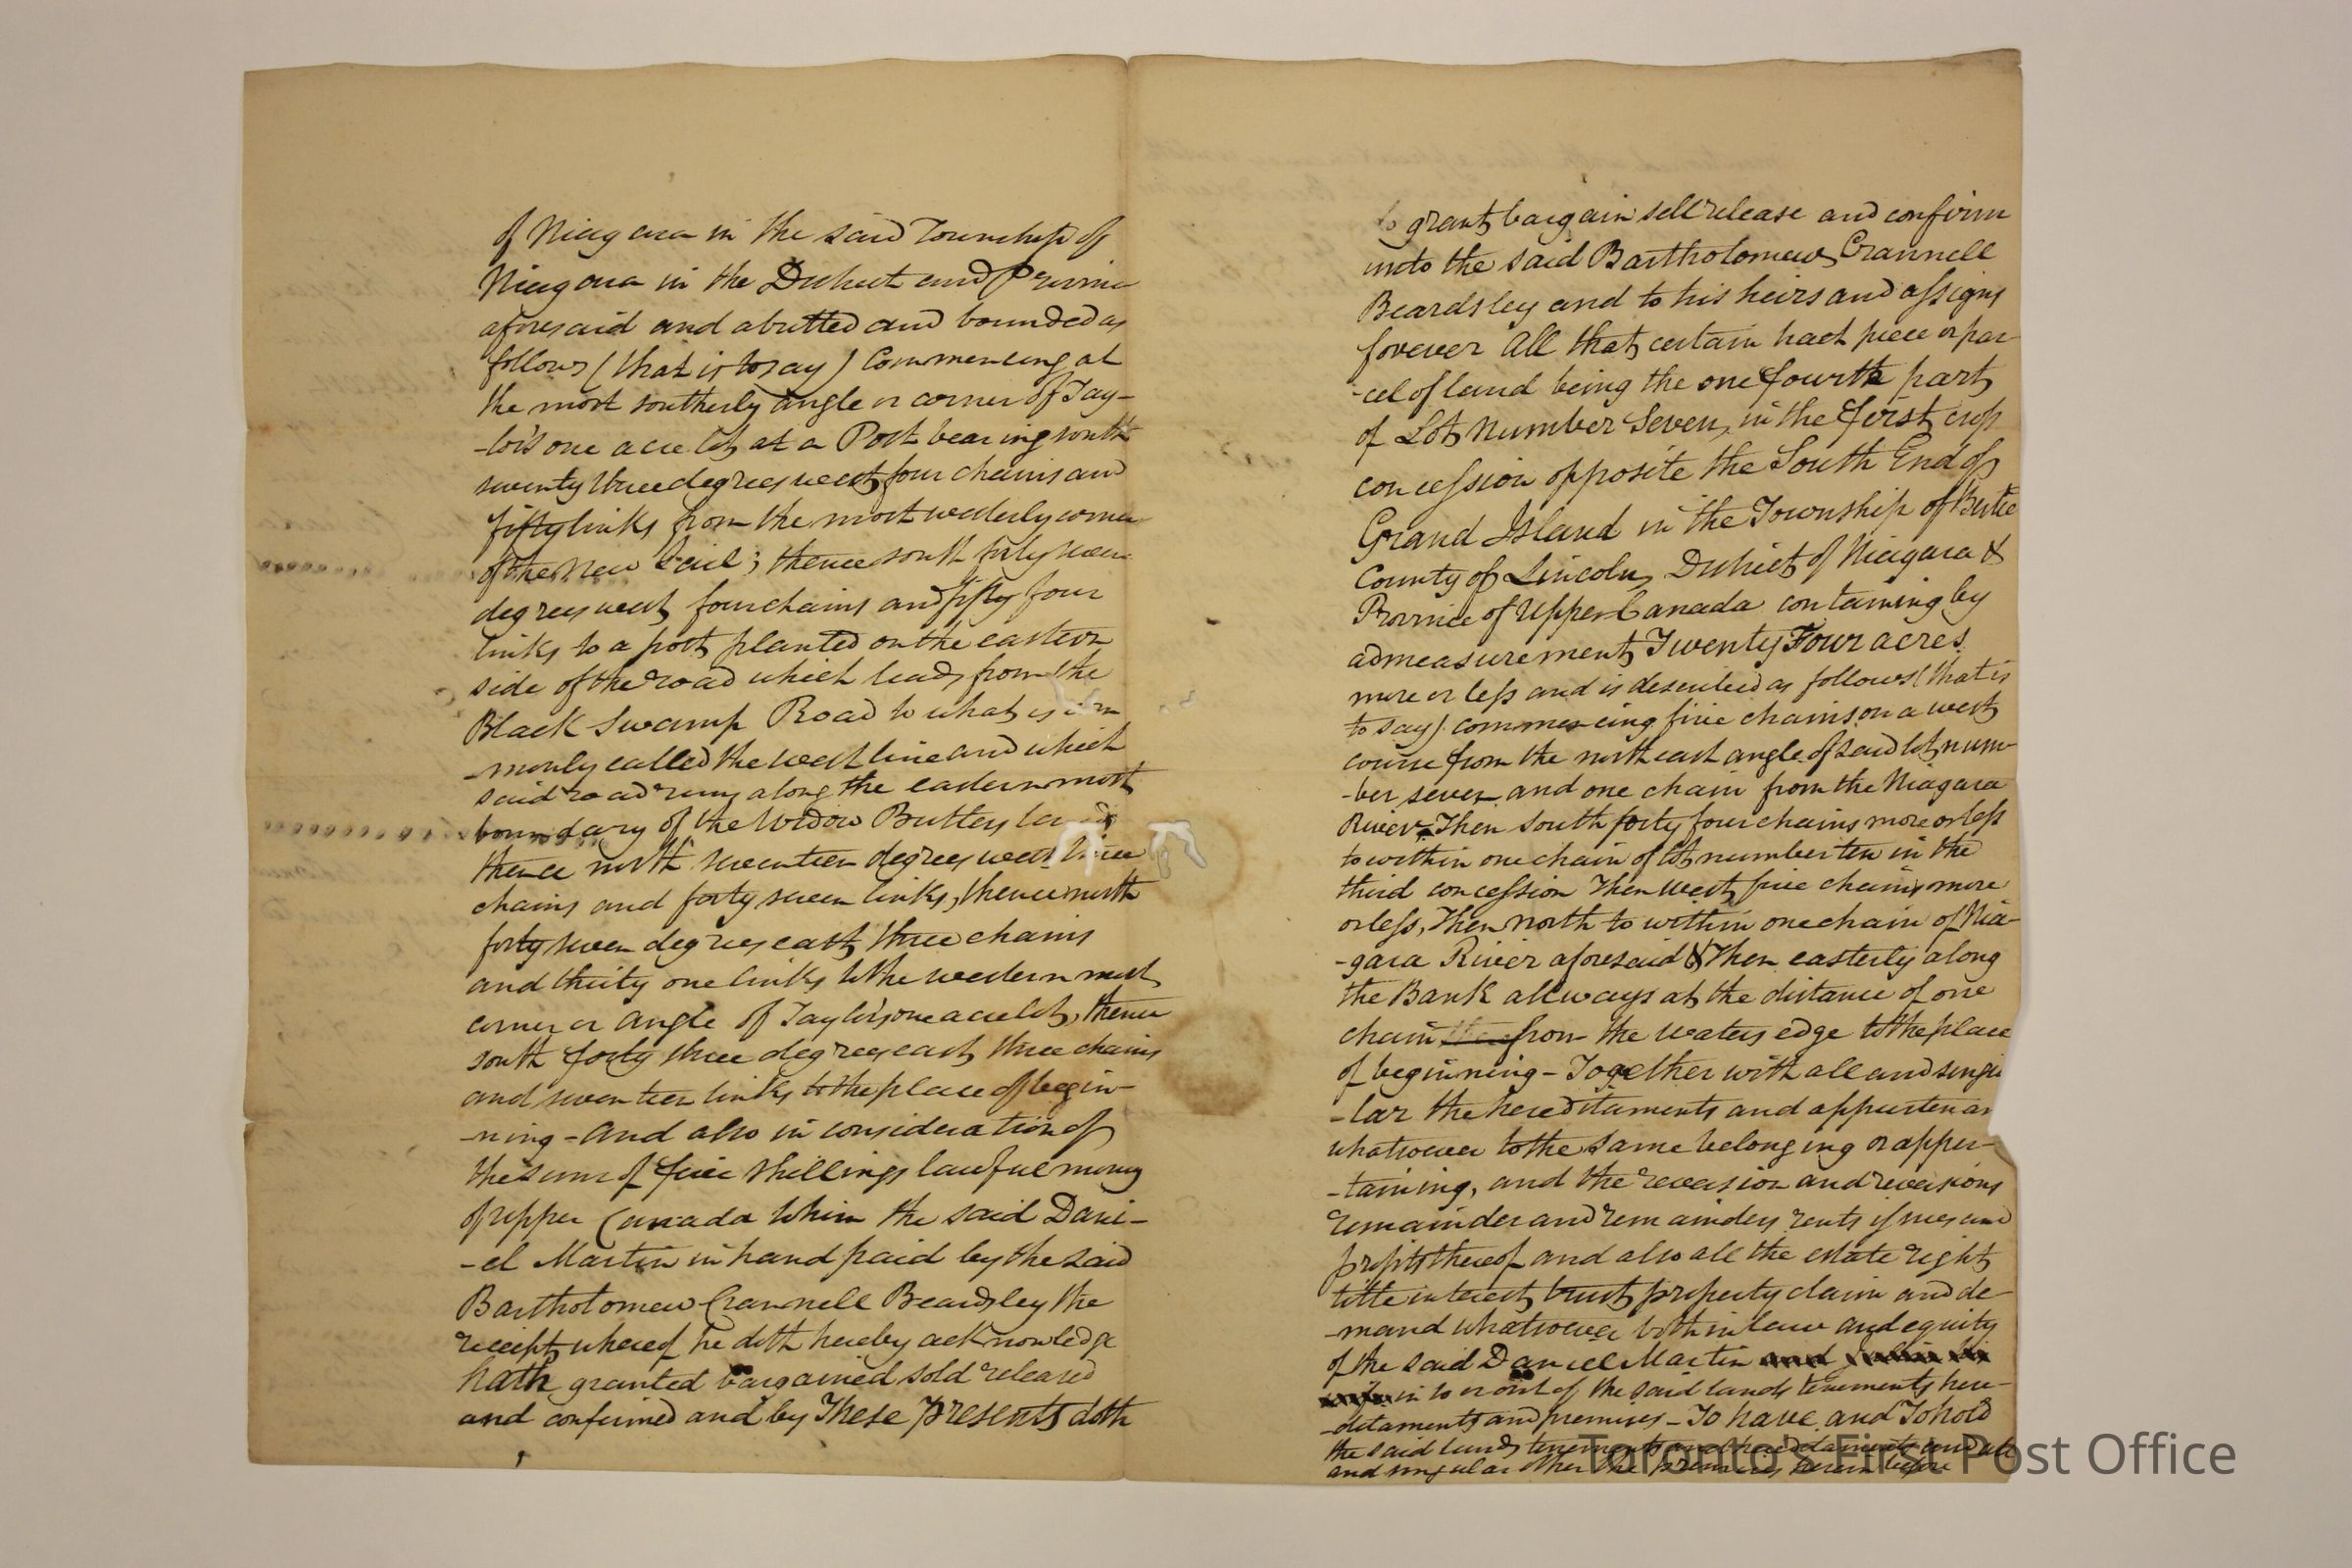 of Niagara in the said Township of
Niagara in the District and Province
aforesaid and abutted and bounded as
follows (that is to say) Commencing at
the most southerly angle or corner of Tay-
-lor's one acre lot at a Post bearing south
seventy three degrees west four chains and
fifty links from the most westerly corner
of the New Gail; thence south forty seven
degrees west four chains and fifty four
links to a post planted on the eastern
side of the road which leads from the
Black Swamp Road to what is com
-monly called the west line and which
said road runs along the eastern most
boundary of the Widow Butlers land
thence north seventeen degrees west three
chains and forty seven links, thence north
forty seven degrees east three chains
and thirty one links to the western most
corner or angle of Taylor's one acre lot, thence
south forty three degrees east three chains
and seventeen links to the place of begin-
-ning - And also in consideration of
the sum of five Shillings lawful money
of upper Canada to him the said Dani-
-el Martin in hand paid by the said
Bartholomew Crannell Beardsley the
receipt whereof he doth hereby acknowledge
hath granted bargained sold released
and confirmed and by These Presents doth
grant bargain sell release and confirm
unto the said Bartholomew Crannell
Beardsley and to his heirs and assigns
forever All that certain tract piece or par-
-cel of land being the one fourth part
of Lot Number Seven, in the first cross
concession opposite the South End of
Grand Island in the Township of Bertie
County of Lincoln, District of Niagara &
Province of Upper Canada containing by
admeasurement Twenty Four acres
more or less and is described as follows (that is
to say) commencing five chains on a west
course from the north east angle of said lot num-
-ber seven and one chain from the Niagara
River Then South forty four chains more or less
to within one chain of lot number ten in the
third concession Then west five chains more
or less, Then North to within one chain of Nia-
-gara River aforesaid & Then easterly along
the Bank allways at the distance of one
chain from the waters edge to the place
of beginning - Together with all and singu
-lar the hereditaments and appurtenan
whatsoever to the same belonging or apper-
-taining, and the reversion and reversions
remainder and remainders rents issues and
profits thereof and also all the estate right
title interest trust property claim and de-
-mand whatsoever both in law and equity
of the said Daniel Martin and
in to or out of the said lands tenements here-
-ditaments and premises - To have and To hold
the said lands tenements and hereditaments and all
and singular other the premises herein before
Toronto's First Post Office